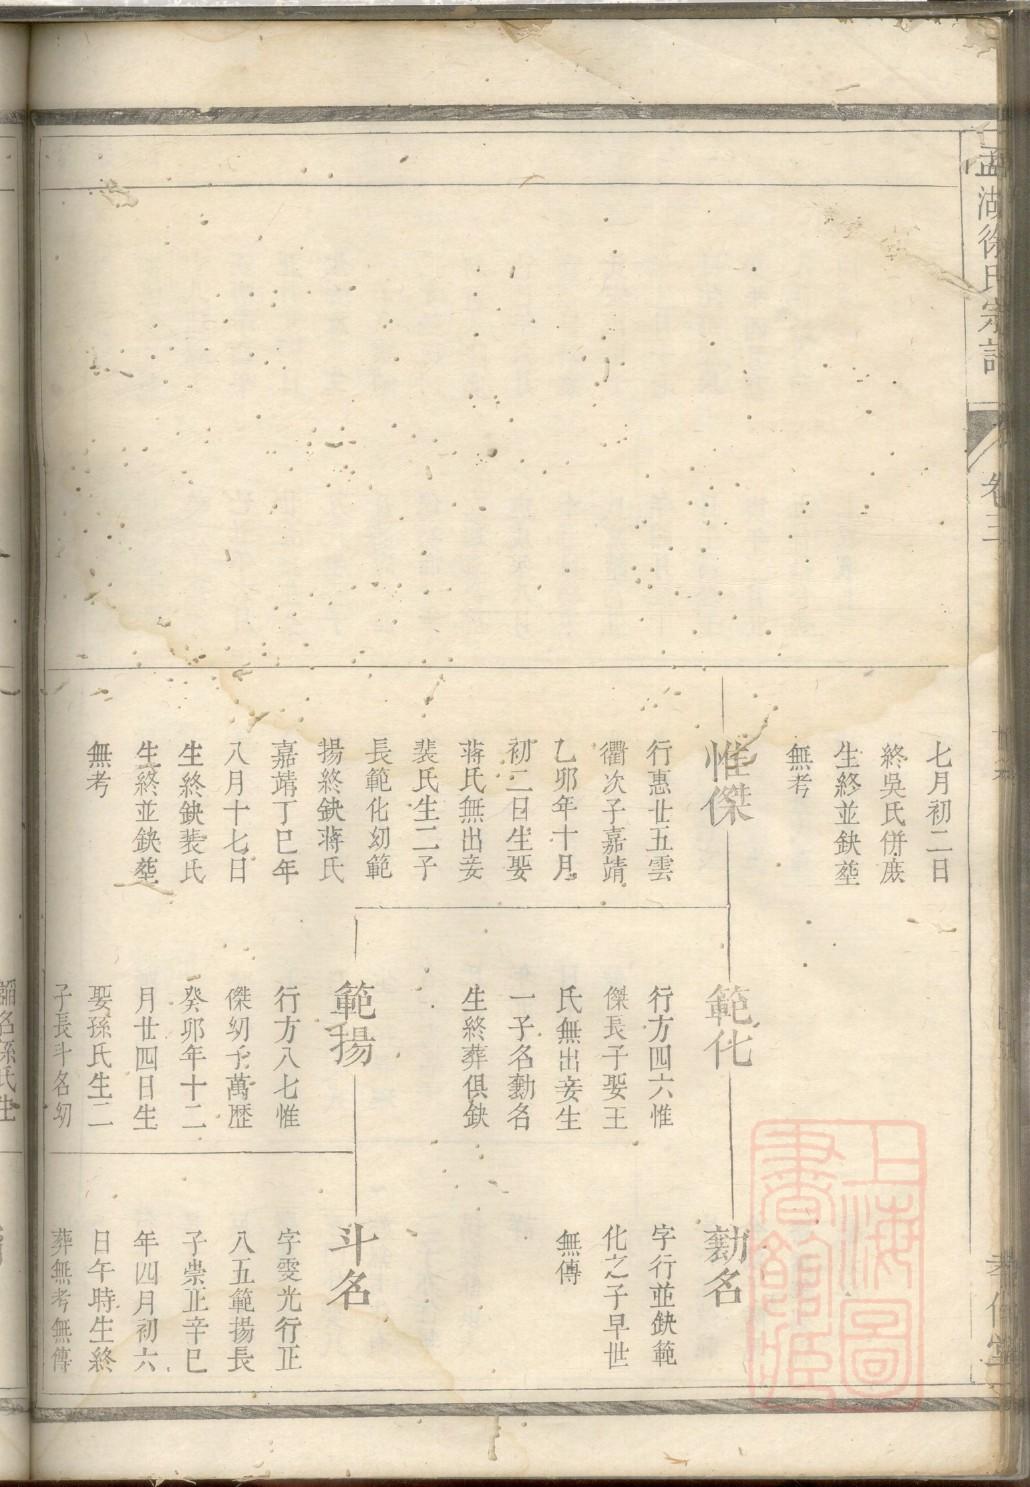 孟湖徐氏宗譜
卷三
七月初二日
終吳氏併廐
生終並鈌塟
無考
惟傑
行惠廿五雲
衢次子嘉靖
乙卯年十月
初二日生娶
蒋氏無出妾
裴氏生二子
長範化幼範
揚終鈌蒋氏
嘉靖丁巳年
八月十七日
生終鈌裴氏
生終並鈌塟
無考
範化
行方四六惟
傑長子娶王
氏無出妾生
一子名勳名
生終葬俱鈌
範揚
行方八七惟
傑幼子萬歷
癸卯年十二
月廿四日生
娶孫氏生二
子長斗名幼
勳名
字行並鈌範
化之子早世
無傳
斗名
字雯光行正
八五範揚長
子崇正辛巳
年四月初六
日午時生終
葬無考無傳
上海圖書館藏